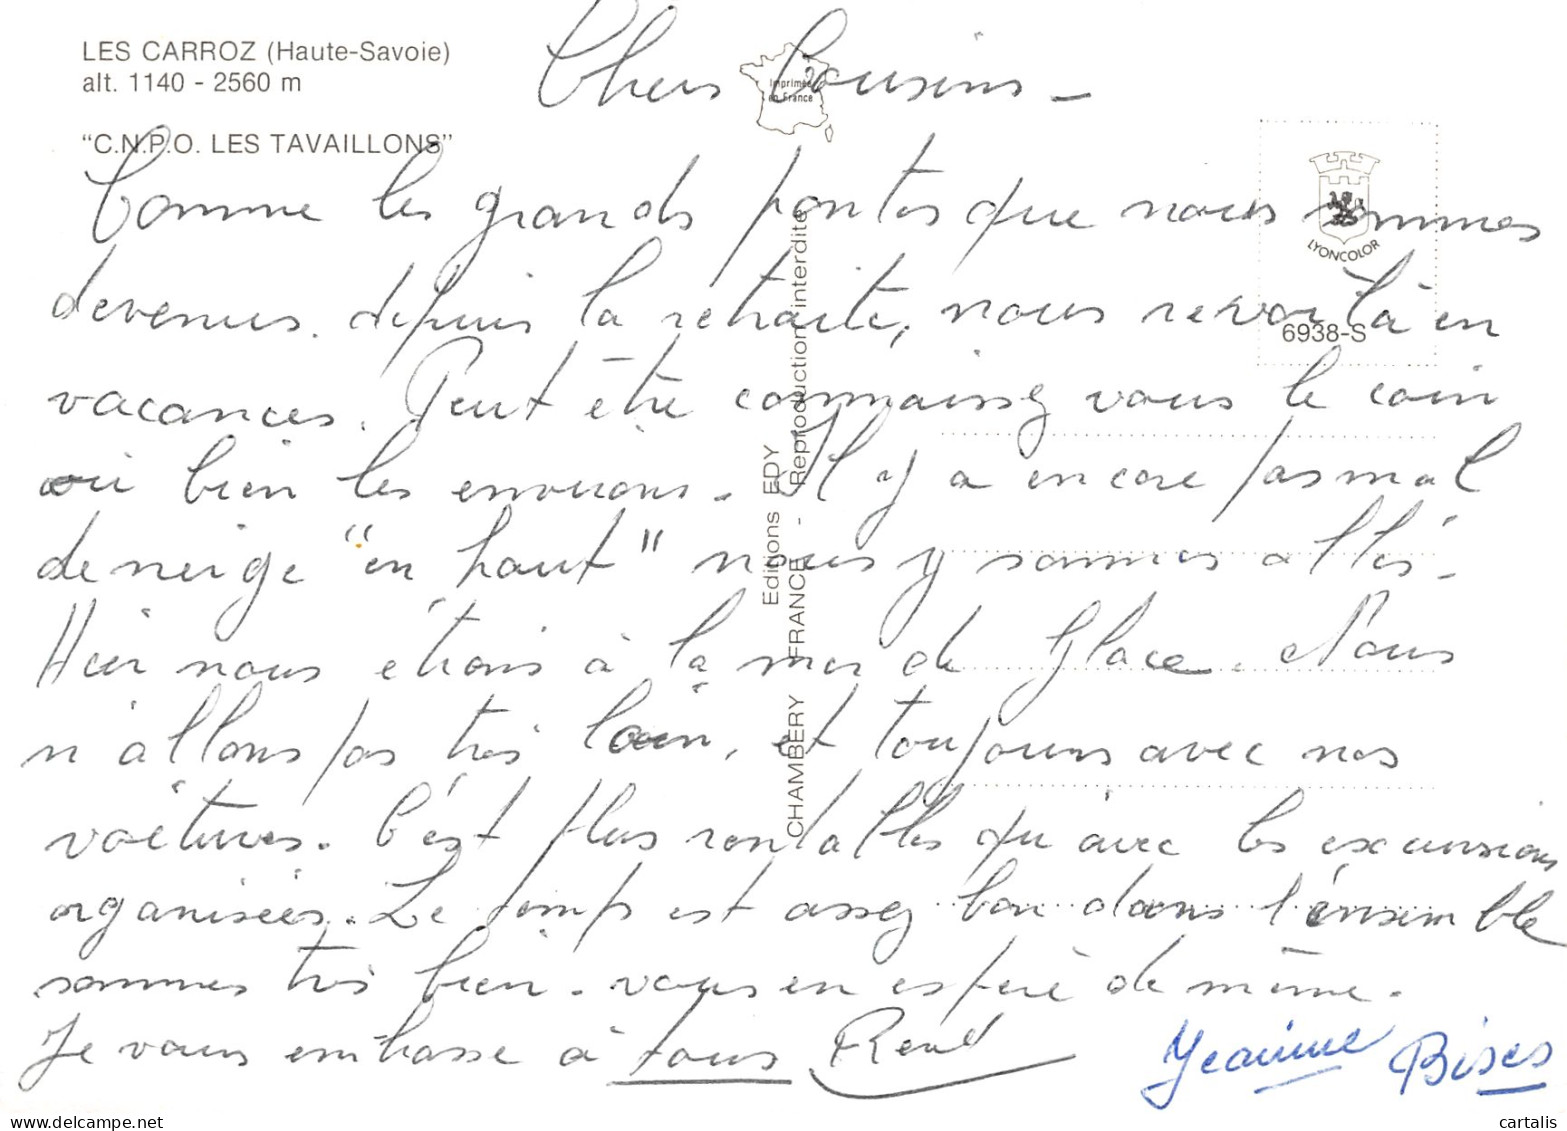 LES CARROZ (Haute-Savoie)
alt. 1140 - 2560 m
"C.N.P.O. LES TAVAILLONS"
Imprimé
en France
LYONCOLOR
6938-S
Editions EDY
CHAMBERY FRANCE - Reproduction interdite
Chers Cousins -
Comme les grands pontes que nous sommes
devenus. depuis la retraite, nous revoilà en
vacances. Peut être connaissez vous le coin
ou bien les environs. Il y a encore pas mal
de neige "en haut" nous y sommes allés.
Hier nous étions à la mer de Glace. Nous
n'allons pas très loin, et toujours avec nos
voitures. C'est plus rentables qu'avec les excursions
organisées. Le temps est assez bon dans l'ensemble
sommes très bien. vous en espère de même.
Je vous embrasse à tous René
Jeannine Bises
cartalis
www.delcampe.net